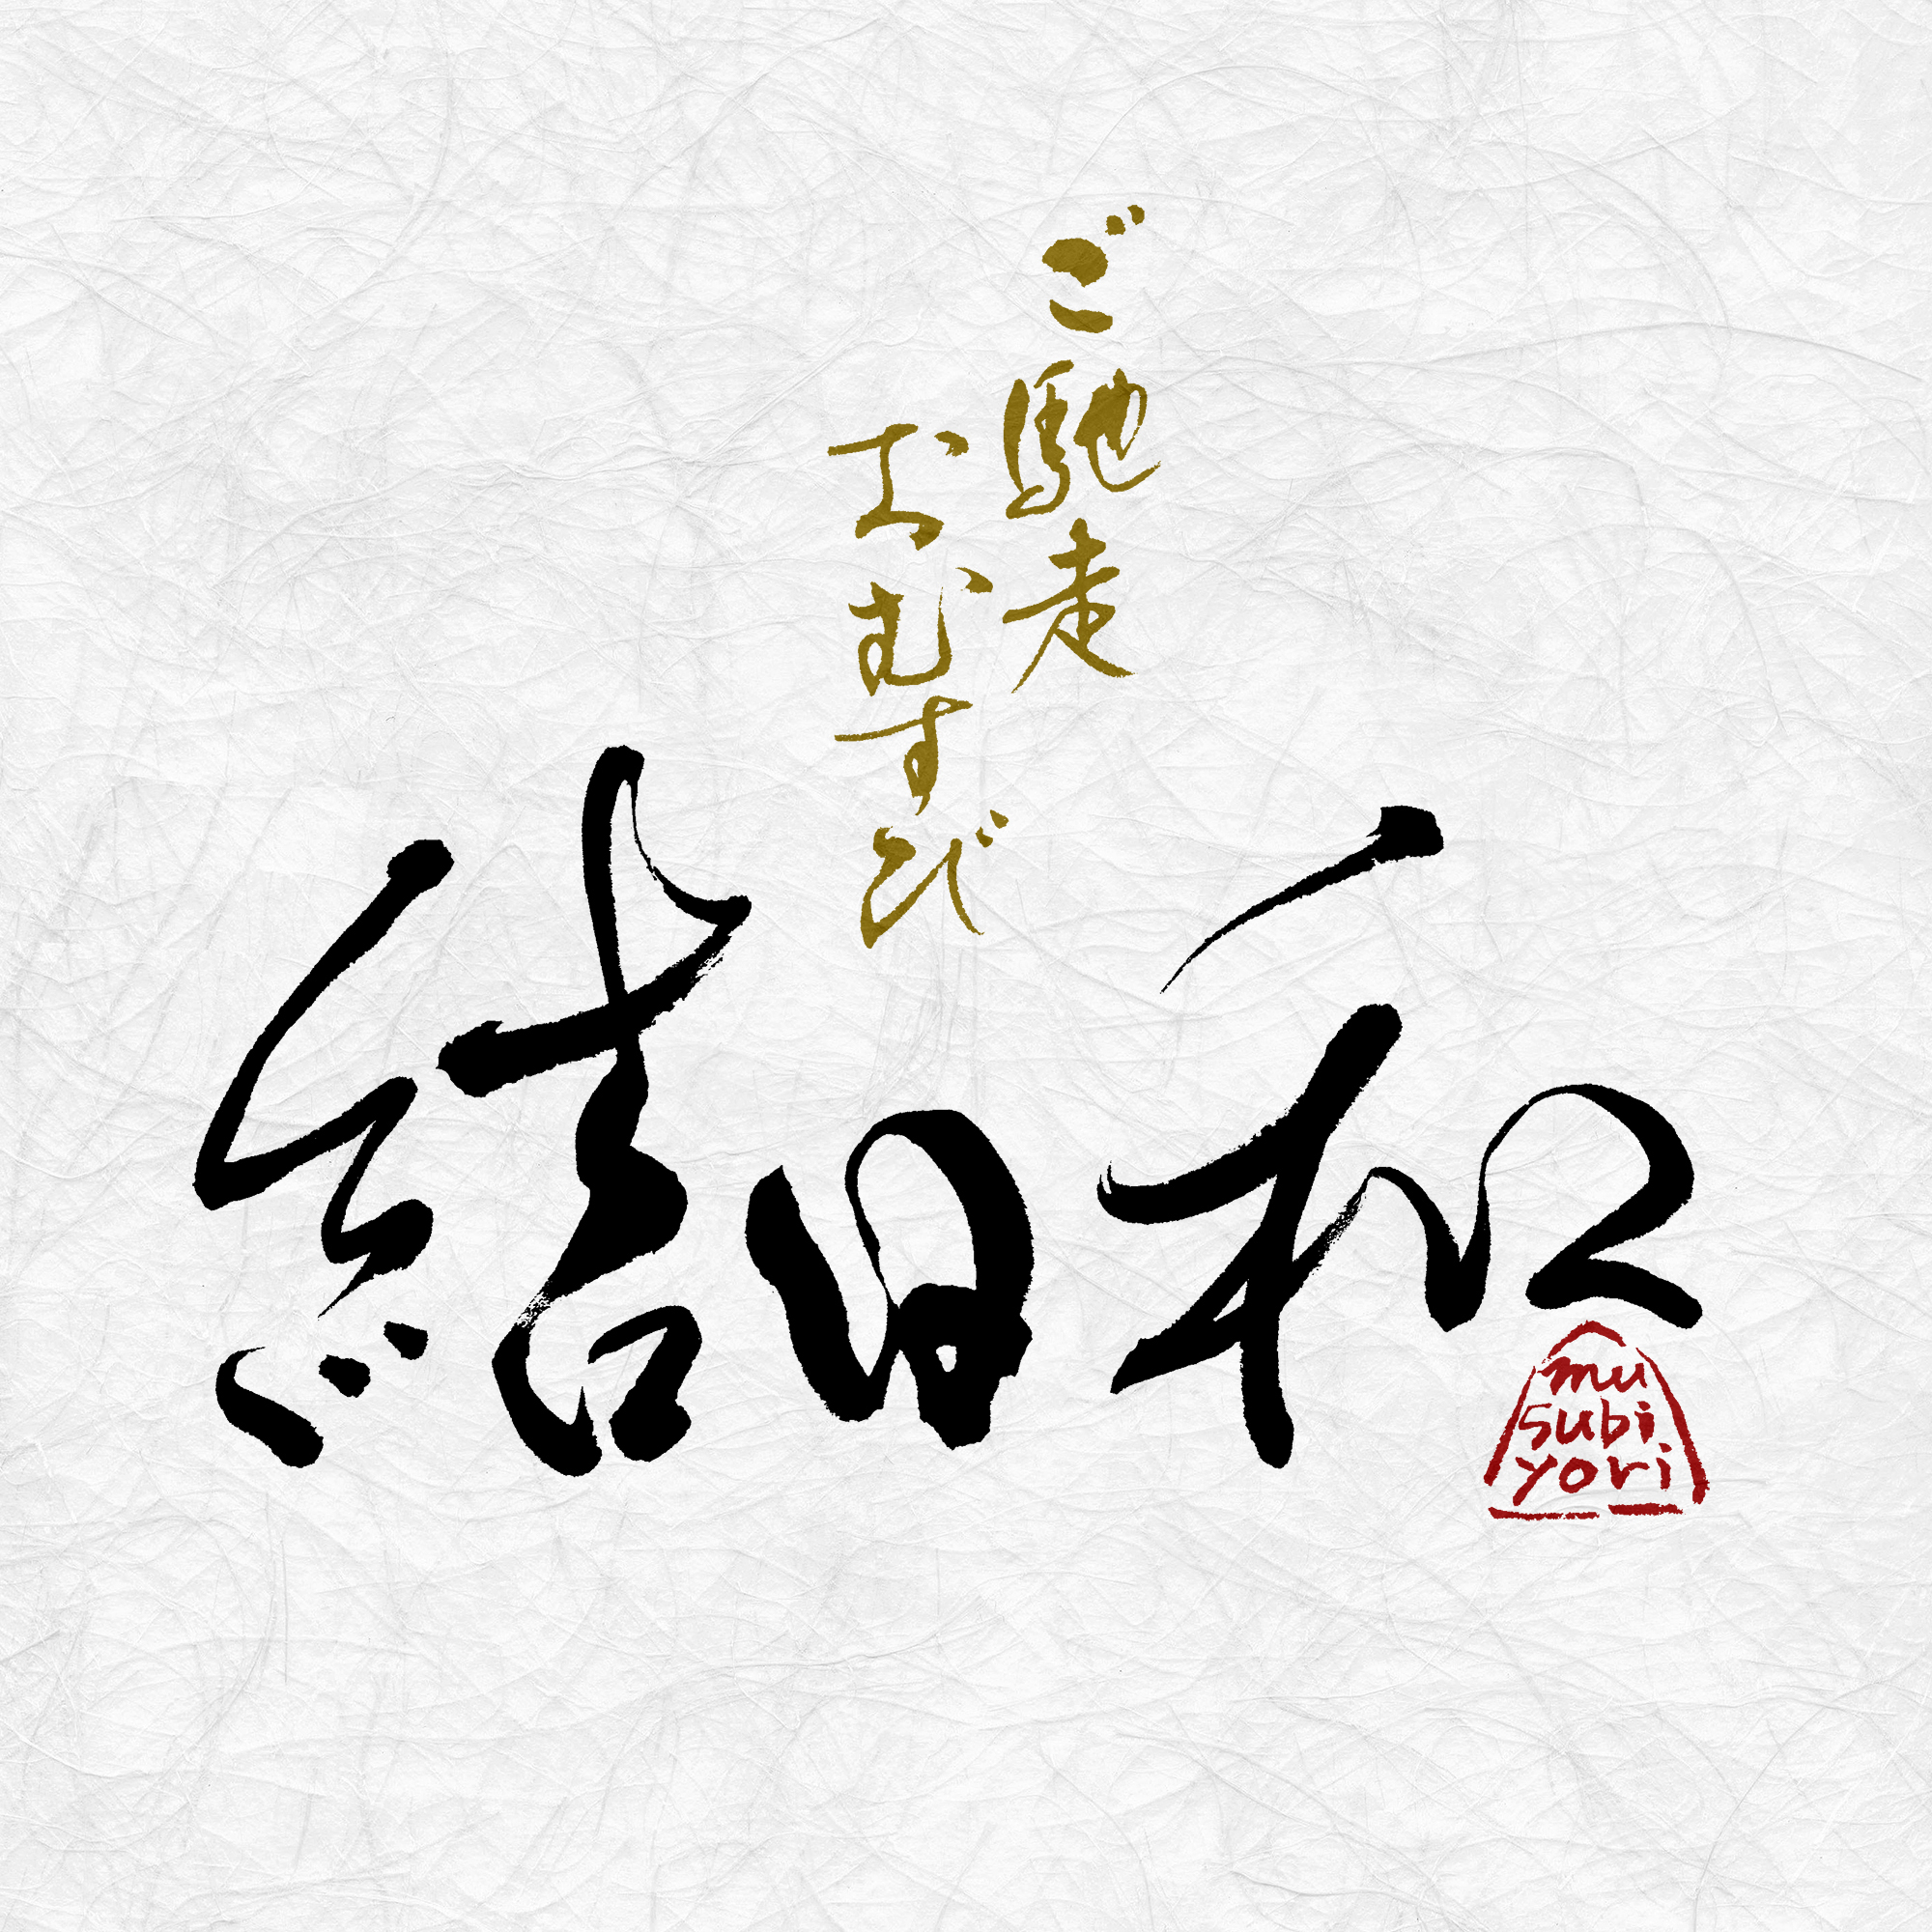 ご馳走
おむすび
結日和
mu
subi
yori